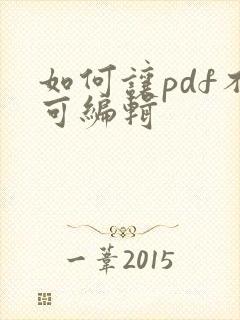 如何讓pdf不
可編輯
一葦2015